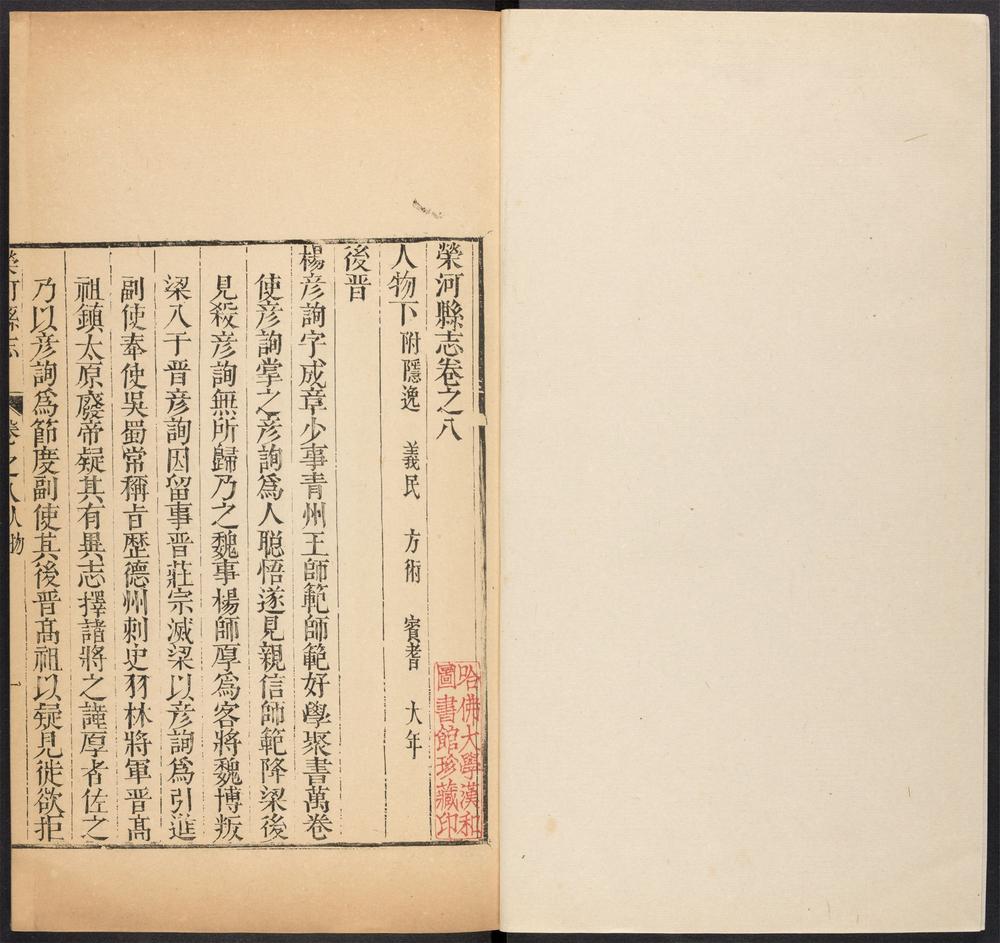 榮河縣志卷之八
人物下附隱逸　義民　方術　賓耆　大年
後晋
楊彦詢字成章少事青州王師範師範好學聚書萬卷
使彦詢掌之彦詢爲人聰悟遂見親信師範降梁後
見殺彦詢無所歸乃之魏事楊師厚爲客將魏博叛
梁入于晋彦詢因留事晋莊宗滅梁以彦詢爲引進
副使奉使吳蜀常稱旨歴德州刺史羽林將軍晋髙
祖鎮太原廢帝疑其有異志擇諸將之謹厚者佐之
乃以彦詢爲節度副使其後晋髙祖以疑見徙欲拒
榮河縣志
卷之八人物
一
哈佛大學漢和
圖書館珍藏印